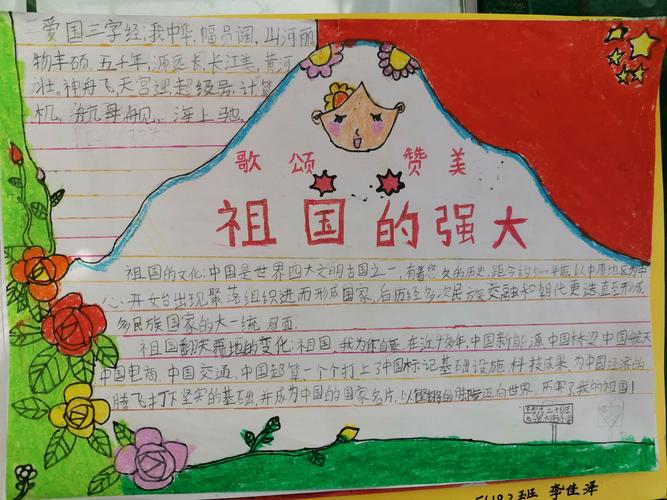 爱国三字经:我中华,幅员阔,山河丽,
物丰硕,五千年,源远长,长江美,黄河
壮。神舟飞天宫遨超级号,计算
机,航母舰,海上驰,
歌颂 赞美
祖国的强大
祖国的文化:中国是世界四大文明古国之一,有着悠久的历史,距今约5000年前,以中原地区为中
心,开始出现聚落组织进而形成国家,后历经多次民族交融和朝代更迭直至形成
多民族国家的大一统
祖国翻天覆地的变化:祖国,我为你自豪,在近十多年,中国新能源中国桥梁中国航天
中国电商,中国交通,中国超算一个个打上了中国标记基础设施科技成果,为中国经济的
腾飞打下坚实的基础,并成为中国的国家名片,以铿锵的步伐迈向世界,厉害了我的祖国!
班 李佳泽